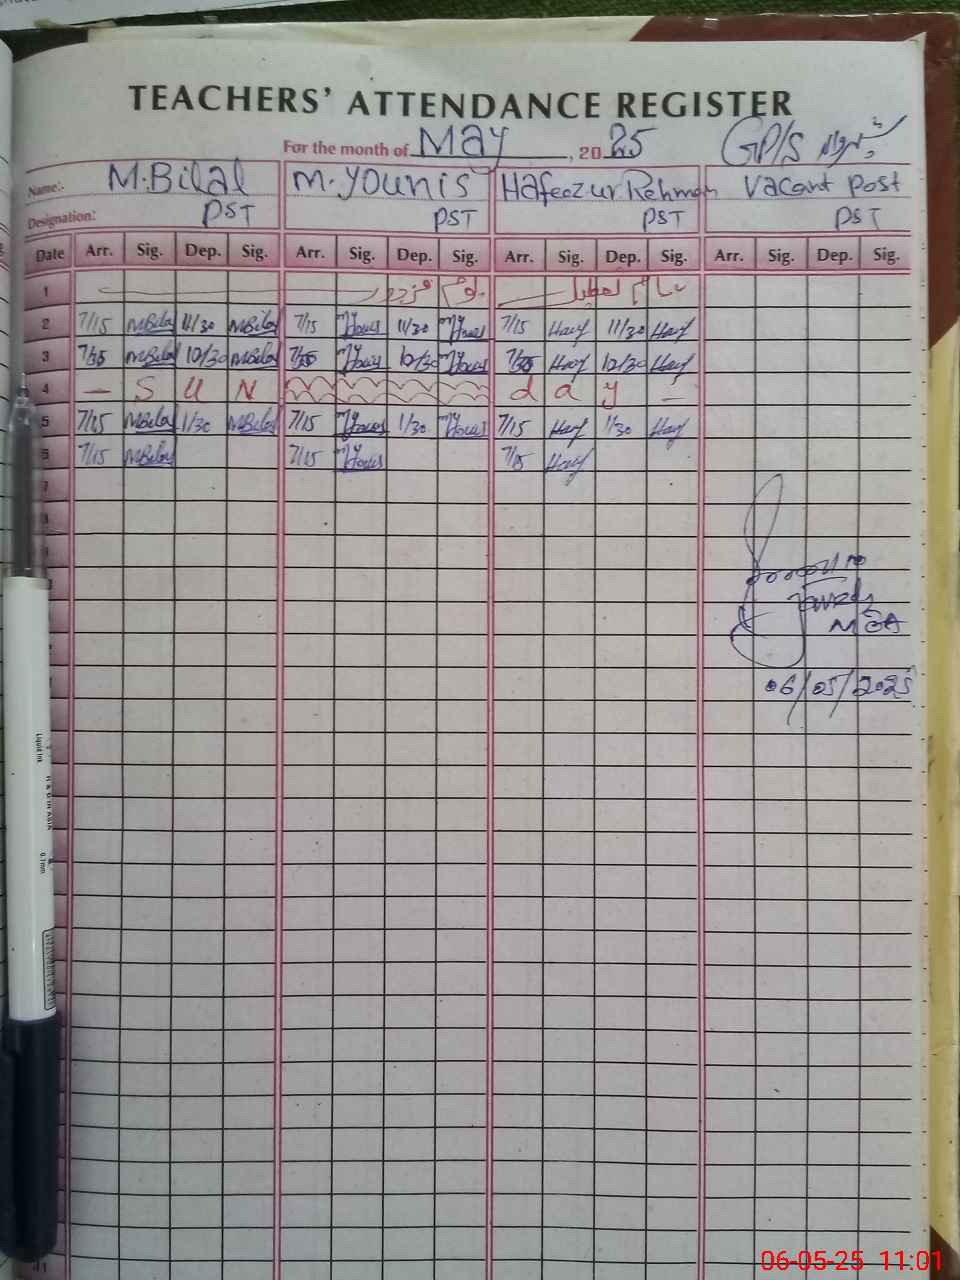 TEACHERS' ATTENDANCE REGISTER
For the month of May, 2025 GP/S
Name:- M.Bilal M.Younis Hafeezur Rehman Vacant Post
Designation: PST PST PST PST
Date Arr. Sig. Dep. Sig. Arr. Sig. Dep. Sig. Arr. Sig. Dep. Sig. Arr. Sig. Dep. Sig.
1 یوم مزدور عام تعطیل
2 7/15 MBilal 11/30 MBilal 7/15 Younis 11/30 Younis 7/15 Hanf 11/30 Hanf
3 MBilal MBilal Younis Younis Hanf 12/30 Hanf
4 — S U N d a y —
5 7/15 MBilal 1/30 MBilal 7/15 Younis 1/30 Younis 7/15 Hanf 1/30 Hanf
6 7/15 MBilal 7/15 Younis 7/15 Hanf
7
8
MEA
06/05/2025
Liquid Ink
0.7mm
06-05-25 11:01